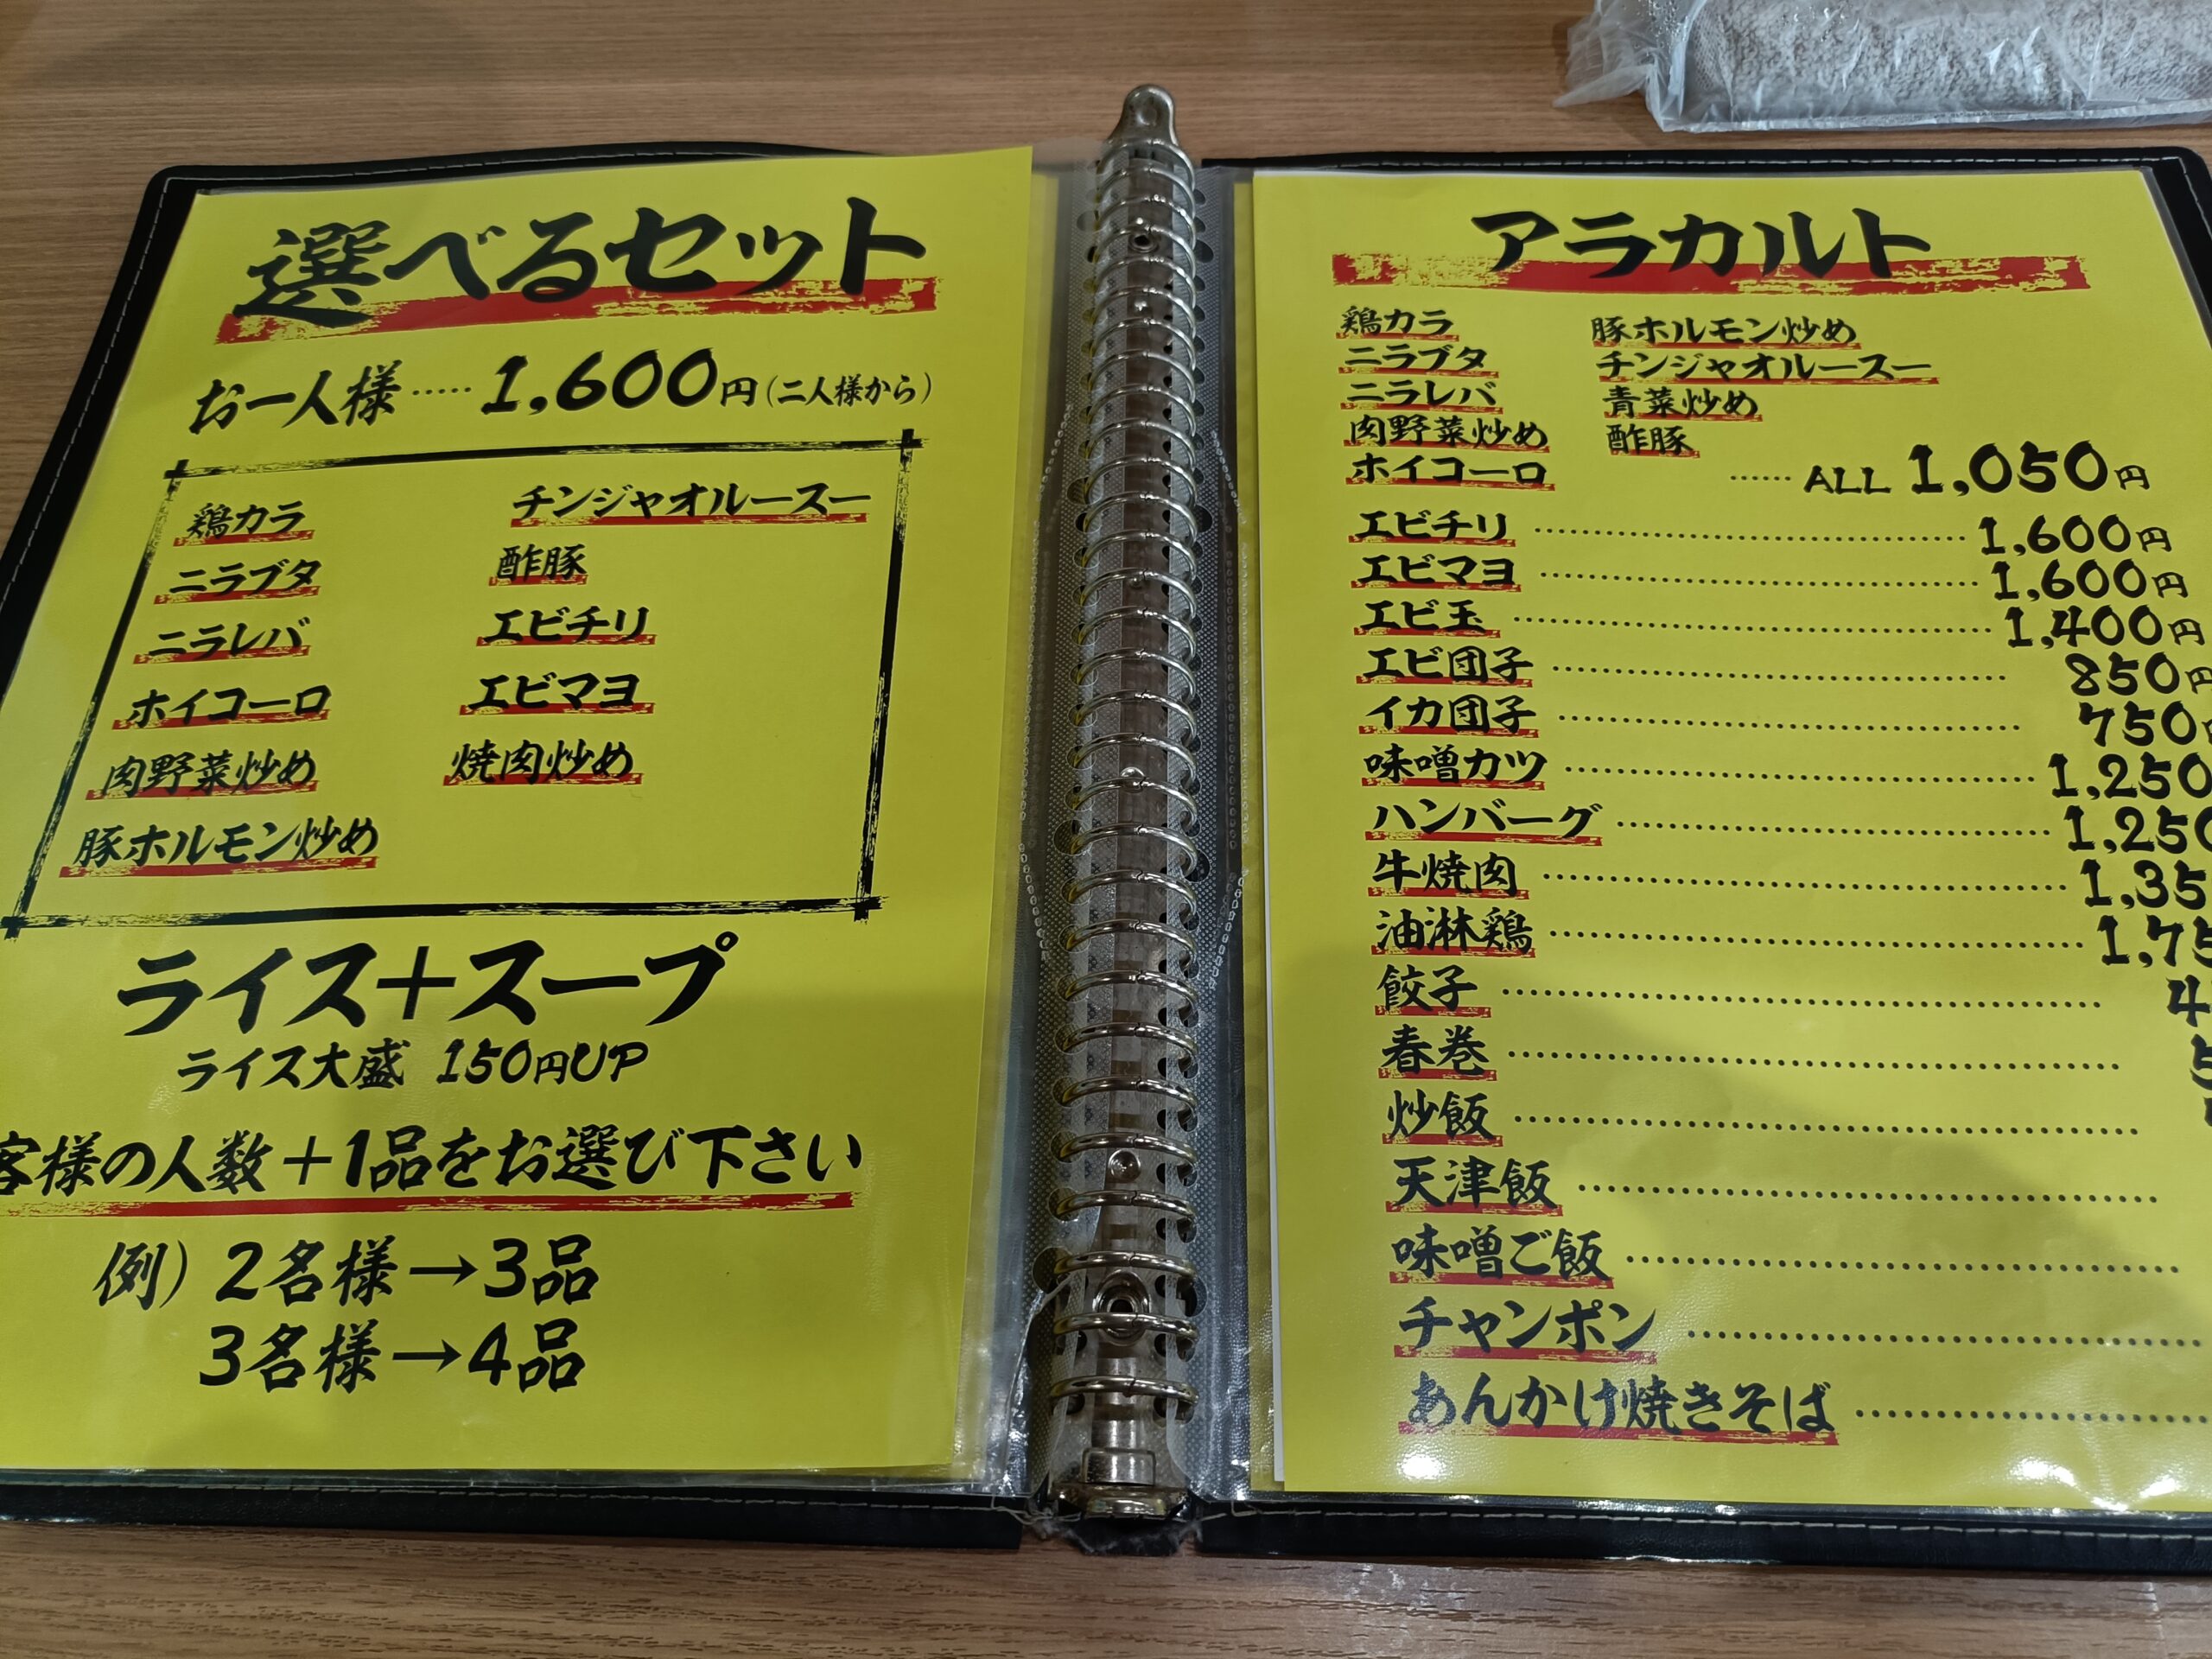 選べるセット
お一人様‥‥‥1,600円(二人様から)
鶏カラ
ニラブタ
ニラレバ
ホイコーロ
肉野菜炒め
豚ホルモン炒め
チンジャオルースー
酢豚
エビチリ
エビマヨ
焼肉炒め
ライス+スープ
ライス大盛 150円UP
客様の人数+1品をお選び下さい
例) 2名様→3品
3名様→4品
アラカルト
鶏カラ
ニラブタ
ニラレバ
肉野菜炒め
ホイコーロ
豚ホルモン炒め
チンジャオルースー
青菜炒め
酢豚
‥‥‥ALL 1,050円
エビチリ‥‥‥1,600円
エビマヨ‥‥‥1,600円
エビ玉‥‥‥1,400円
エビ団子‥‥‥850円
イカ団子‥‥‥750円
味噌カツ‥‥‥1,250
ハンバーグ‥‥‥1,250
牛焼肉‥‥‥1,35
油淋鶏‥‥‥1,75
餃子‥‥‥4
春巻‥‥‥5
炒飯‥‥‥
天津飯‥‥‥
味噌ご飯‥‥‥
チャンポン‥‥‥
あんかけ焼きそば‥‥‥